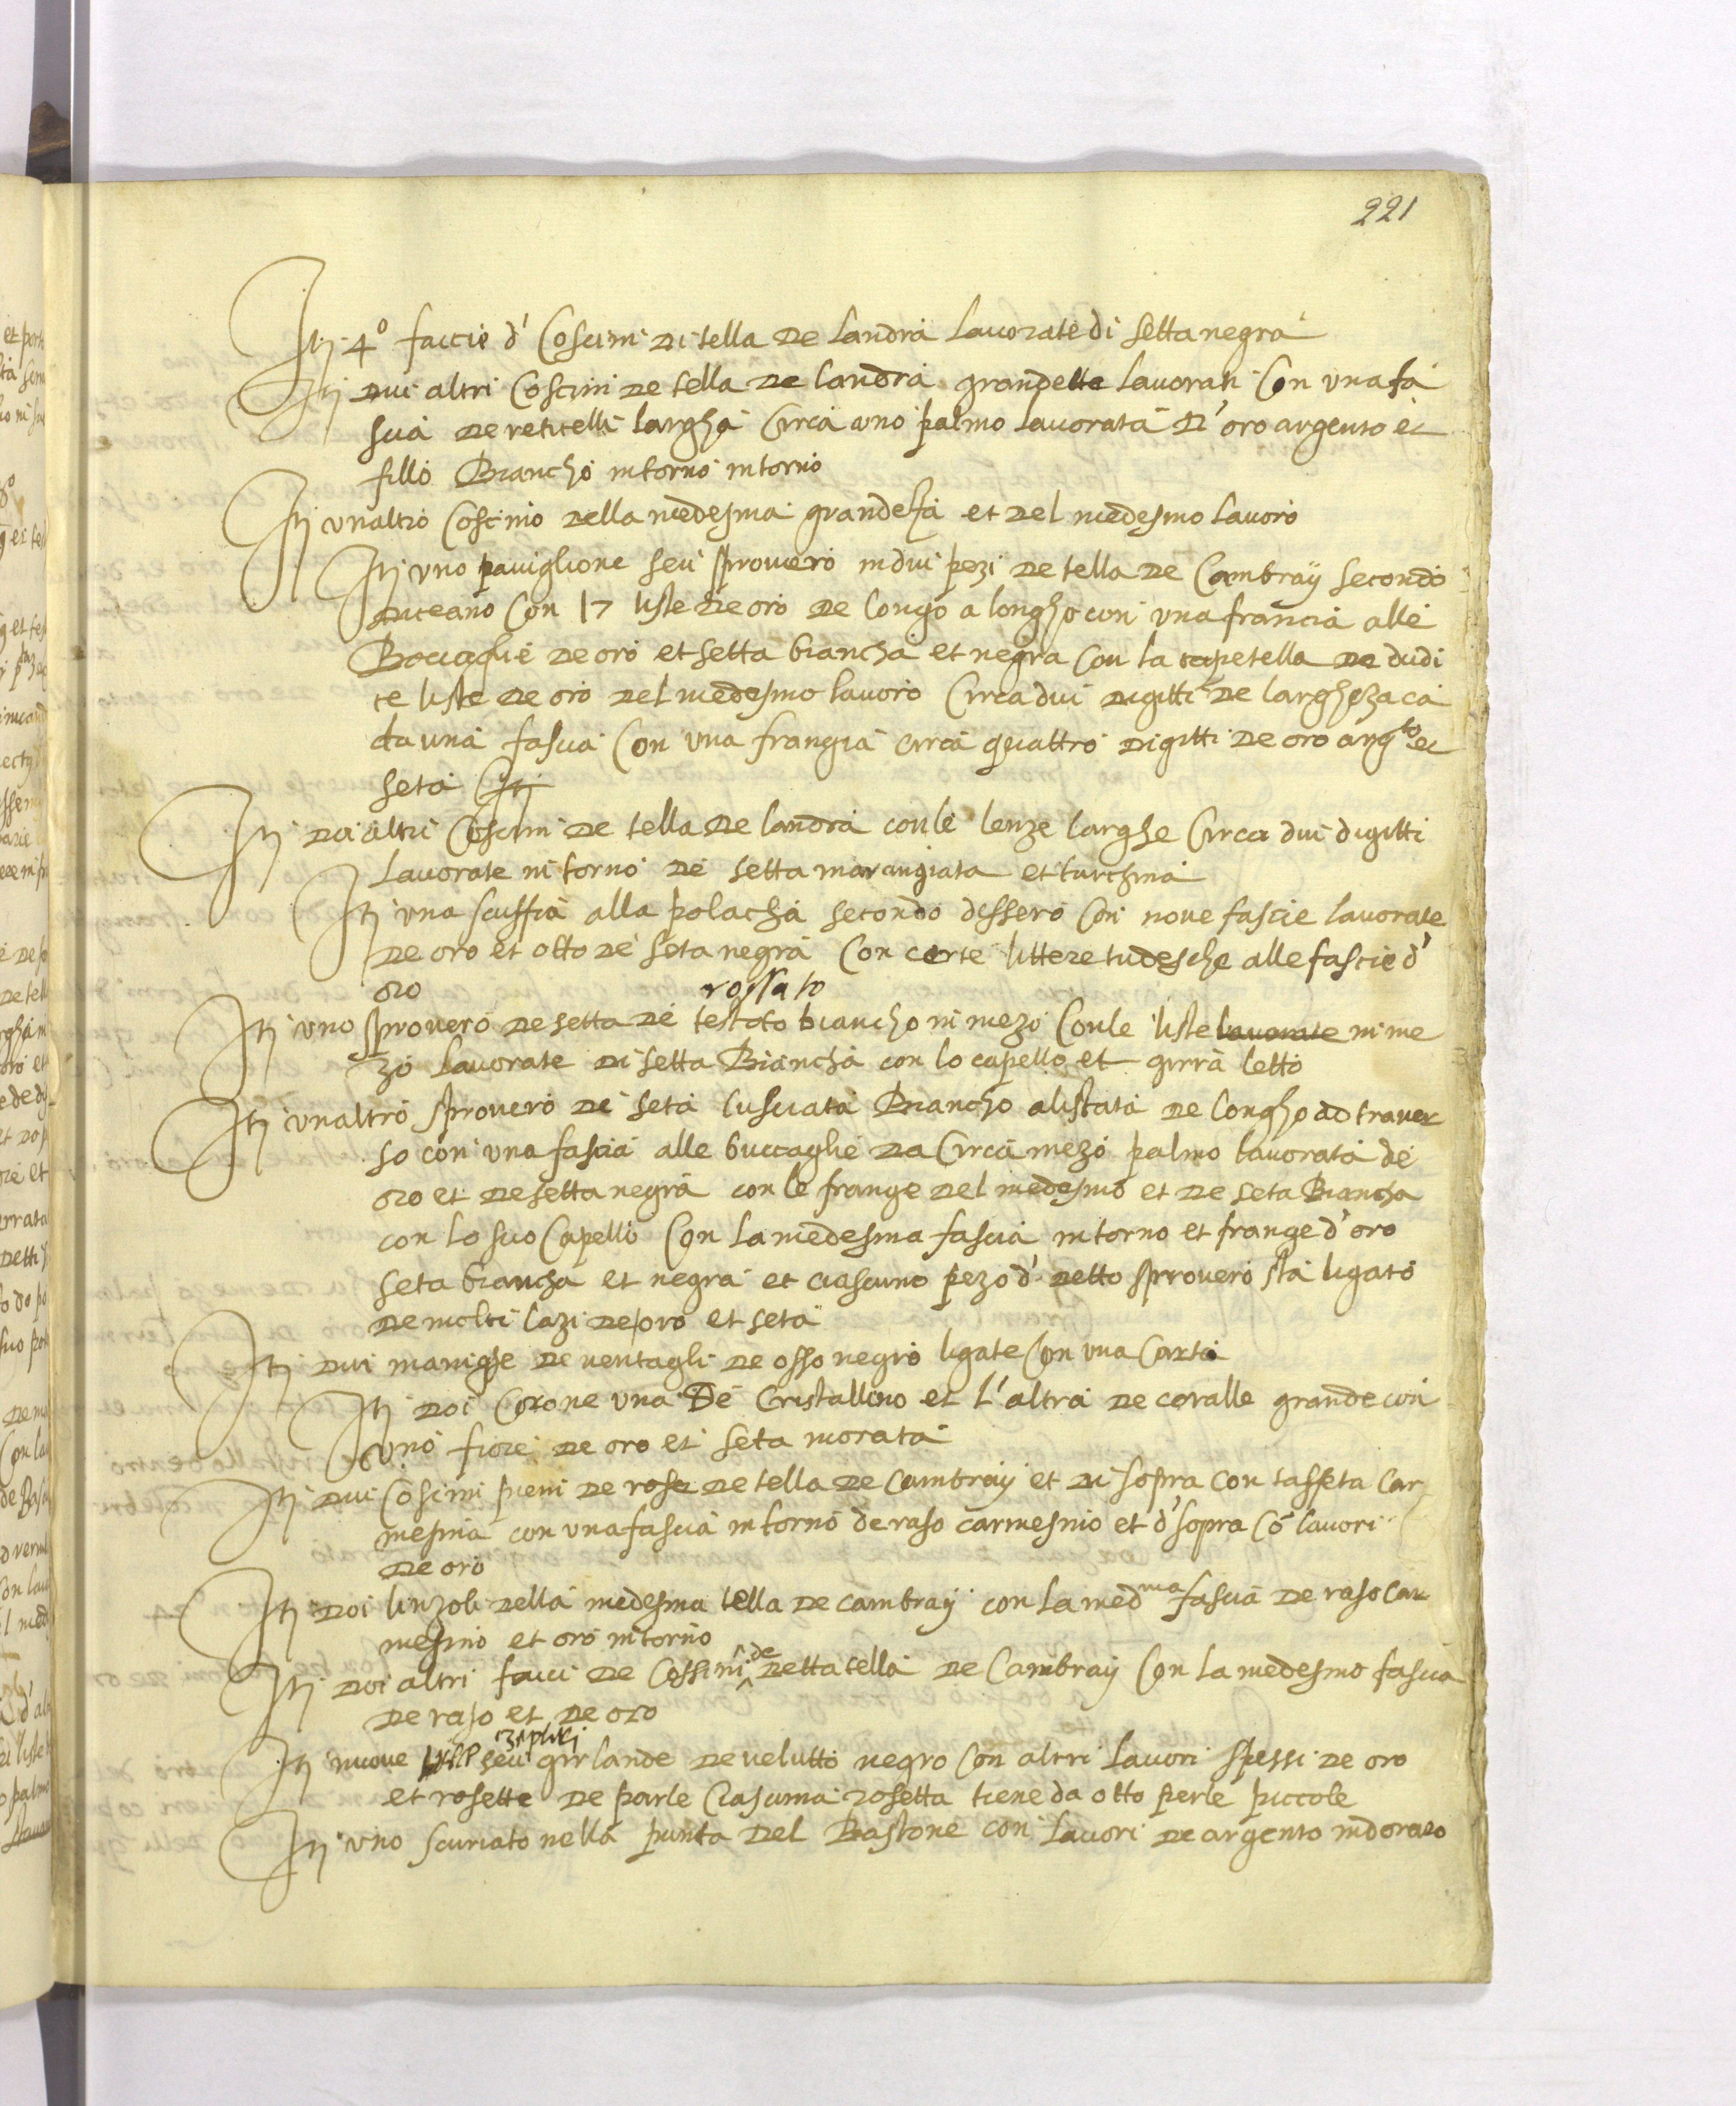 221
Itj 4º faccie d' Coscini di tella de landra lavorate di setta negra
Itj dui altri Coscini de tella de landra grandette lavorati Con una fa
scia de reticelli largha Circa uno palmo lavorata d' oro argento et
fillo Biancho intorno intorno
Itj unaltro Coscino della medesma grandeza et del medesmo lavoro
Itj uno paviglione seu sprovero in dui pezi de tella de Cambraÿ secondo
diceano Con 17 liste de oro de longo a longho con una francia alle
Boccaglie de oro et setta biancha et negra Con la capetella de dudi
ce liste de oro del medesmo lavoro Circa dui digitti de larghezaca
da una fascia Con una frangia circa quattro digitti de oro argto et
seta Itj
Itj doi altri Coscini de tella de landra con le lenze larghe Circa dui digitti
lavorate in torno de setta marangiata et turchina
Itj una scuffia alla polacha secondo dissero Con nove fascie lavorate
de oro et otto de seta negra Con certe littere tudesche alle fascie d'
oro
rossato
Itj uno sprovero de setta de testoto biancho in mezo Con le liste lavorate in me
zo lavorate di setta Biancha con lo capello et girra letto
Itj unaltro sprovero de seta lusciata Biancho alistata de longho ad traver
so con una fascia alle buccaglie da Circa mezo palmo lavorata de
oro et de setta negra con le frange del medesmo et de seta Biancha
con lo suo Capello Con la medesma fascia intorno et frange d'oro
seta biancha et negra et ciascuno pezo d' detto sprovero sta ligato
de molti lazi de oro et seta
Itj dui maniche de ventagli de osso negro ligate Con una Carta
Itj doi Corone una De Cristallino et l'altra de coralle grande con
uno fiore de oro et seta morata
Itj dui Coscini pieni de rose de tella de Cambraÿ et di sopra con taffeta Car
mesina con una fascia intorno de raso carmesino et d'sopra Cõ lavori
de oro
Itj doi linzoli della medesma tella de cambraÿ con la medma fascia de raso car
mesino et oro intorno
Itj doi altri facci de Cossini de detta tella de Cambraÿ Con la medesmo fascia
de raso et de oro
Itj nuove seu girlande de velutto negro Con altri lavori spessi de oro
et rosette de parle Ciascuna rosetta tiene da otto perle piccole
Itj uno scuriato nella punta del Bastone con lavori de argento indorato